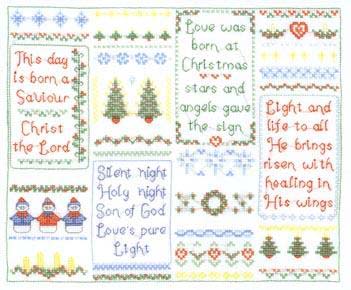 This day
is born a
Saviour
Christ
the Lord
Love was
born at
Christmas
stars and
angels gave
the sign
Silent night
Holy night
Son of God
Love's pure
Light
Light and
life to all
He brings
risen with
healing in
His wings